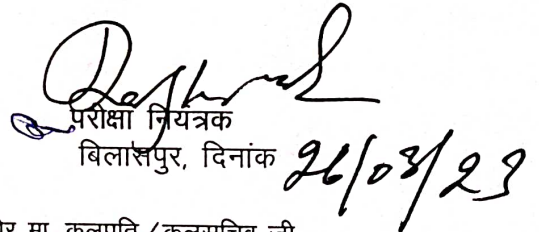 परीक्षा नियंत्रक
बिलासपुर, दिनांक 26/03/23
मा. कुलपति/कुलसचिव जी